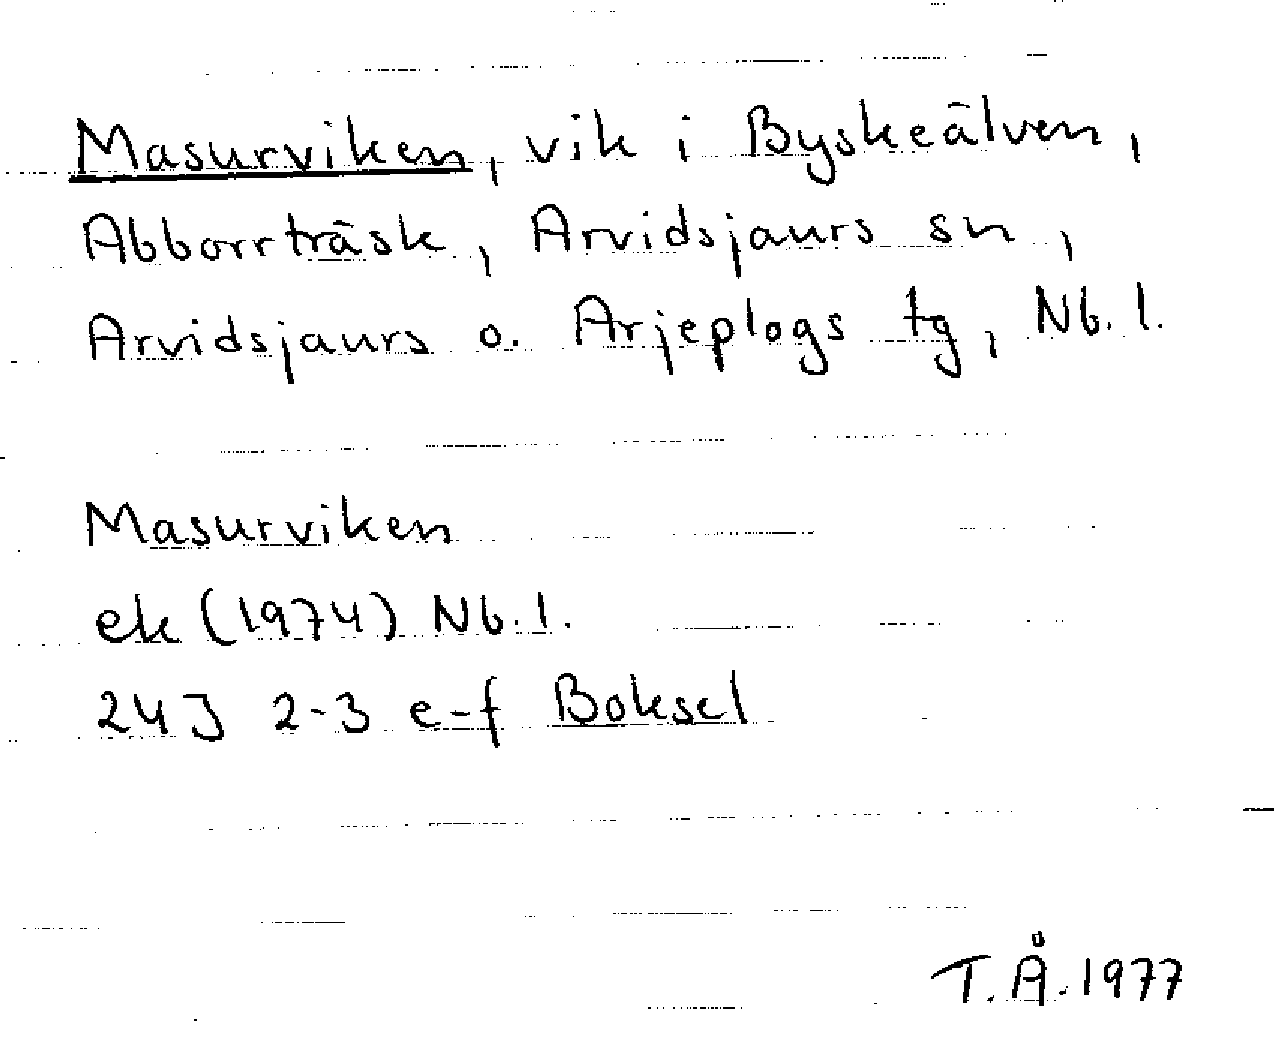 Masurviken, vik i Byskeälven,
Abborrträsk, Arvidsjaurs sn,
Arvidsjaurs o. Arjeplogs tg, Nb. l.
Masurviken
ek (1974) Nb. l.
24J 2-3 e-f Boksel
T. Å. 1977